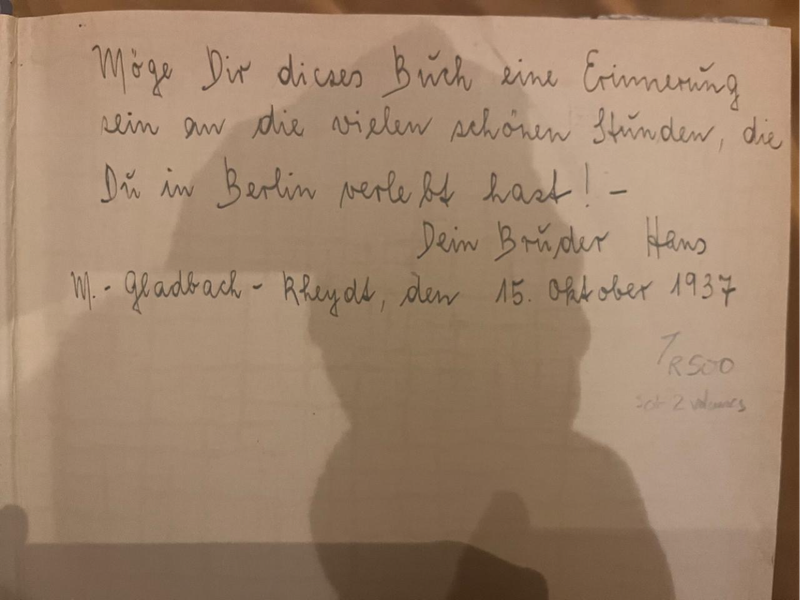 Möge Dir dieses Buch eine Erinnerung
sein an die vielen schönen Stunden, die
Du in Berlin verlebt hast! –
Dein Bruder Hans
M.-Gladbach-Rheydt, den 15. Oktober 1937
R500
set 2 volumes